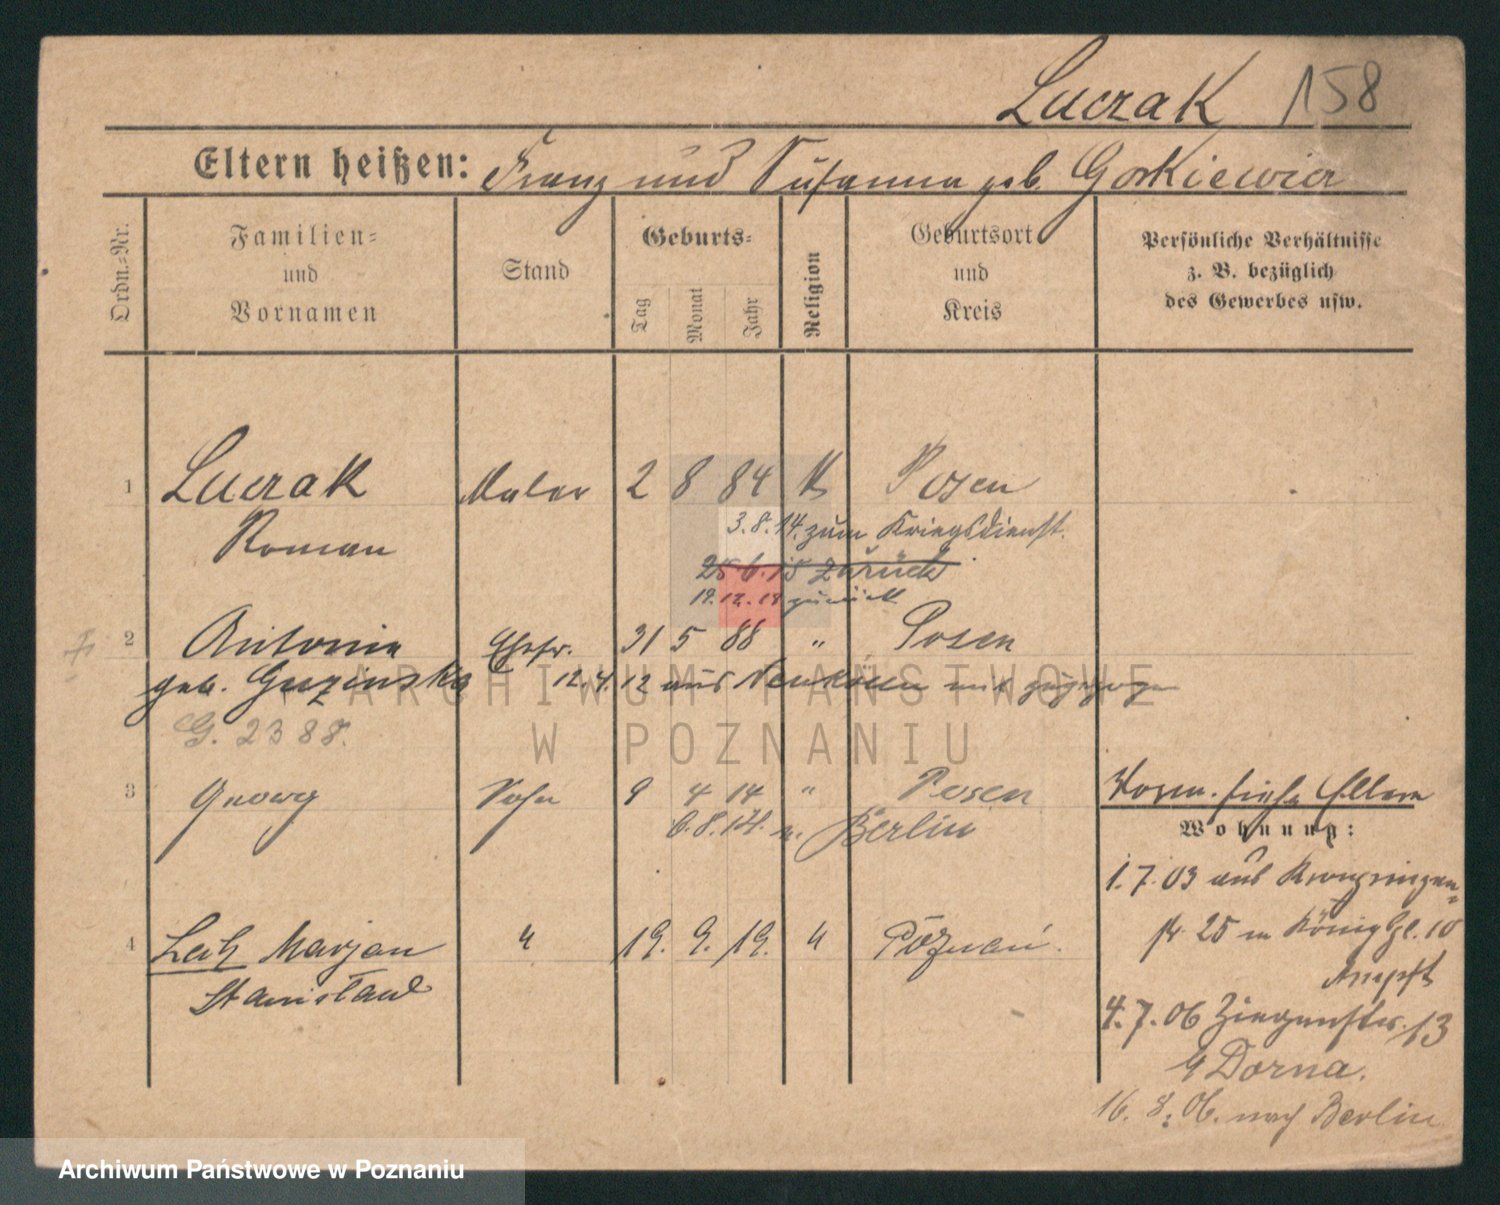 Luczak 158
Eltern heißen: Franz und Susanna geb. Gorkiewicz
Ordn.-Nr.
Familien-
und
Vornamen
Stand
Geburts-
Tag
Monat
Jahr
Religion
Geburtsort
und
Kreis
Persönliche Verhältnisse
z. B. bezüglich
des Gewerbes usw.
1 Luczak Maler 2 8 84 K Posen
Roman
3.8.14. zum Kriegsdienst.
25.6.15 zurück
19.12.18 zurück
2 Antonie Ehefr. 31 5 88 " Posen
geb. Guzinska 12.4.12 aus Neukölln
G. 2388.
3 Georg Sohn 9 4 14 " Posen
6.8.14. n. Berlin
4 Lech Marjan " 19. 9. 19. " Poznań.
Stanisław
siehe Eltern
Wohnung:
1.7.03 aus Kronprinzen-
str. 25 n König Pl. 10
4.7.06 Ziegenstr. 13
b Dorna.
16.8.06. nach Berlin
ARCHIWUM PAŃSTWOWE
W POZNANIU
Archiwum Państwowe w Poznaniu